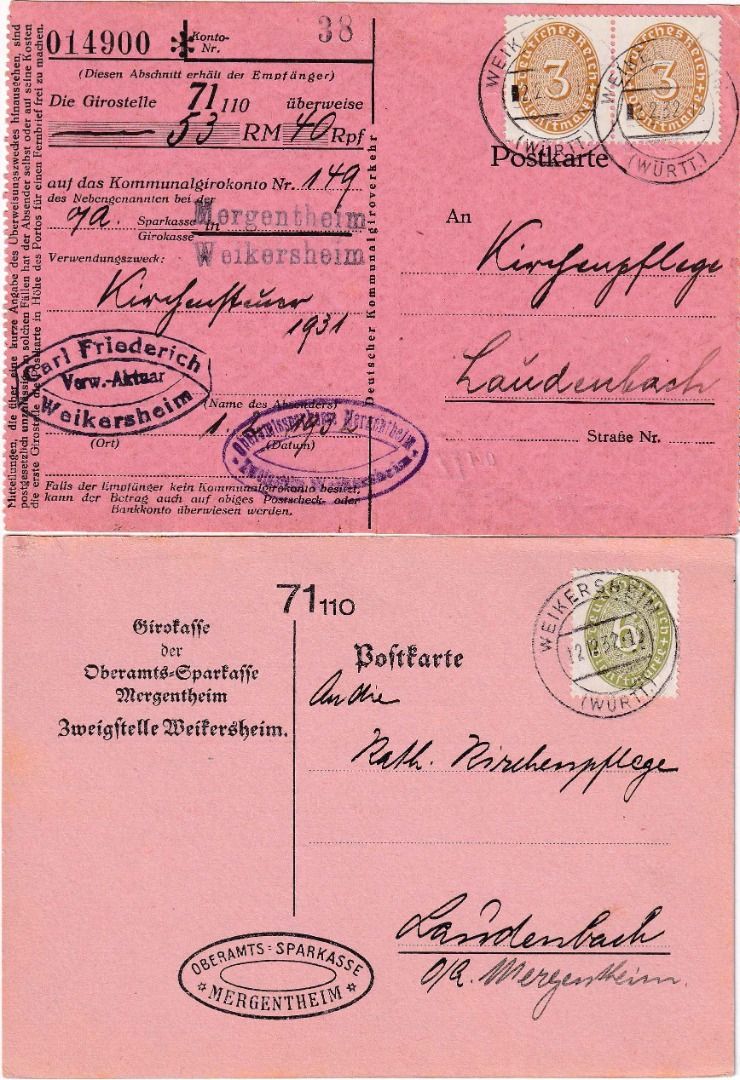 Mitteilungen, die über eine kurze Angabe des Überweisungszweckes hinausgehen, sind
postgesetzlich unzulässig. In solchen Fällen hat der Absender selbst oder auf seine Kosten
die erste Girostelle die Postkarte in Höhe des Portos für einen Fernbrief frei zu machen.
014900 * Konto-Nr. 38
(Diesen Abschnitt erhält der Empfänger)
Die Girostelle 71 110 überweise
53 RM 40 Rpf
auf das Kommunalgirokonto Nr. 149
des Nebengenannten bei der
7a. Sparkasse in Mergentheim
Girokasse Weikersheim
Verwendungszweck:
Kirchensteuer
1931
Carl Friederich
Verw.-Aktuar
Weikersheim
(Name des Absenders)
1. 193
(Ort) (Datum)
Oberamtssparkasse Mergentheim
Zweigstelle Weikersheim
Falls der Empfänger kein Kommunalgirokonto besitzt,
kann der Betrag auch auf obiges Postscheck- oder
Bankkonto überwiesen werden.
Deutscher Kommunalgiroverkehr
Deutsches Reich
3
Dienstmarke
Deutsches Reich
3
Dienstmarke
WEIKERSHEIM
2.2.32
(WÜRTT.)
WEIKE
2.2.32
(WÜRTT.)
Postkarte
An
Kirchenpflege
Laudenbach
Straße Nr.
71110
Girokasse
der
Oberamts-Sparkasse
Mergentheim
Zweigstelle Weikersheim.
Postkarte
Deutsches Reich
6
Dienstmarke
WEIKERSHEIM
12.12.32.12
(WÜRTT.)
An die
Kath. Kirchenpflege
Laudenbach
O/A. Mergentheim.
OBERAMTS-SPARKASSE
* MERGENTHEIM *